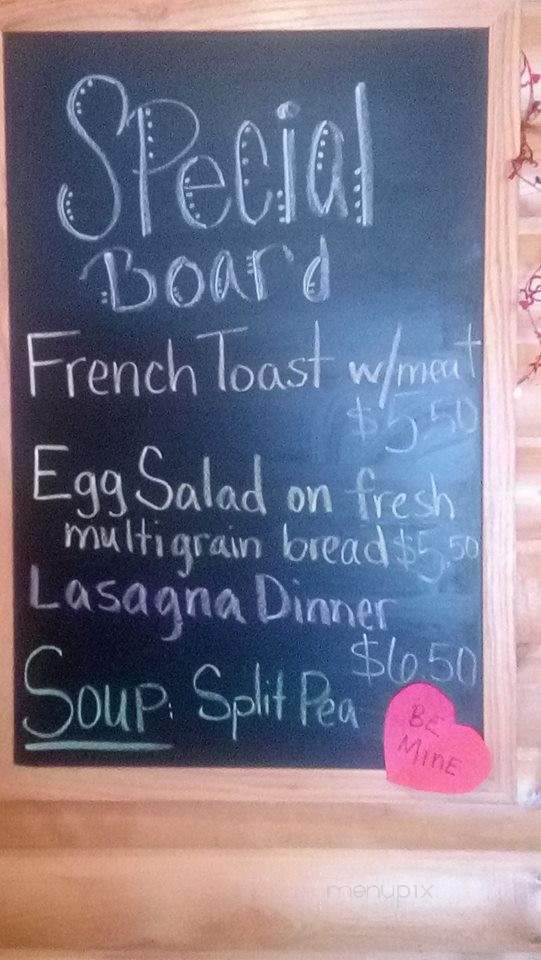 Special
Board
French Toast w/meat
$5.50
Egg Salad on fresh
multigrain bread $5.50
Lasagna Dinner
$6.50
Soup: Split Pea
BE
MINE
menupix